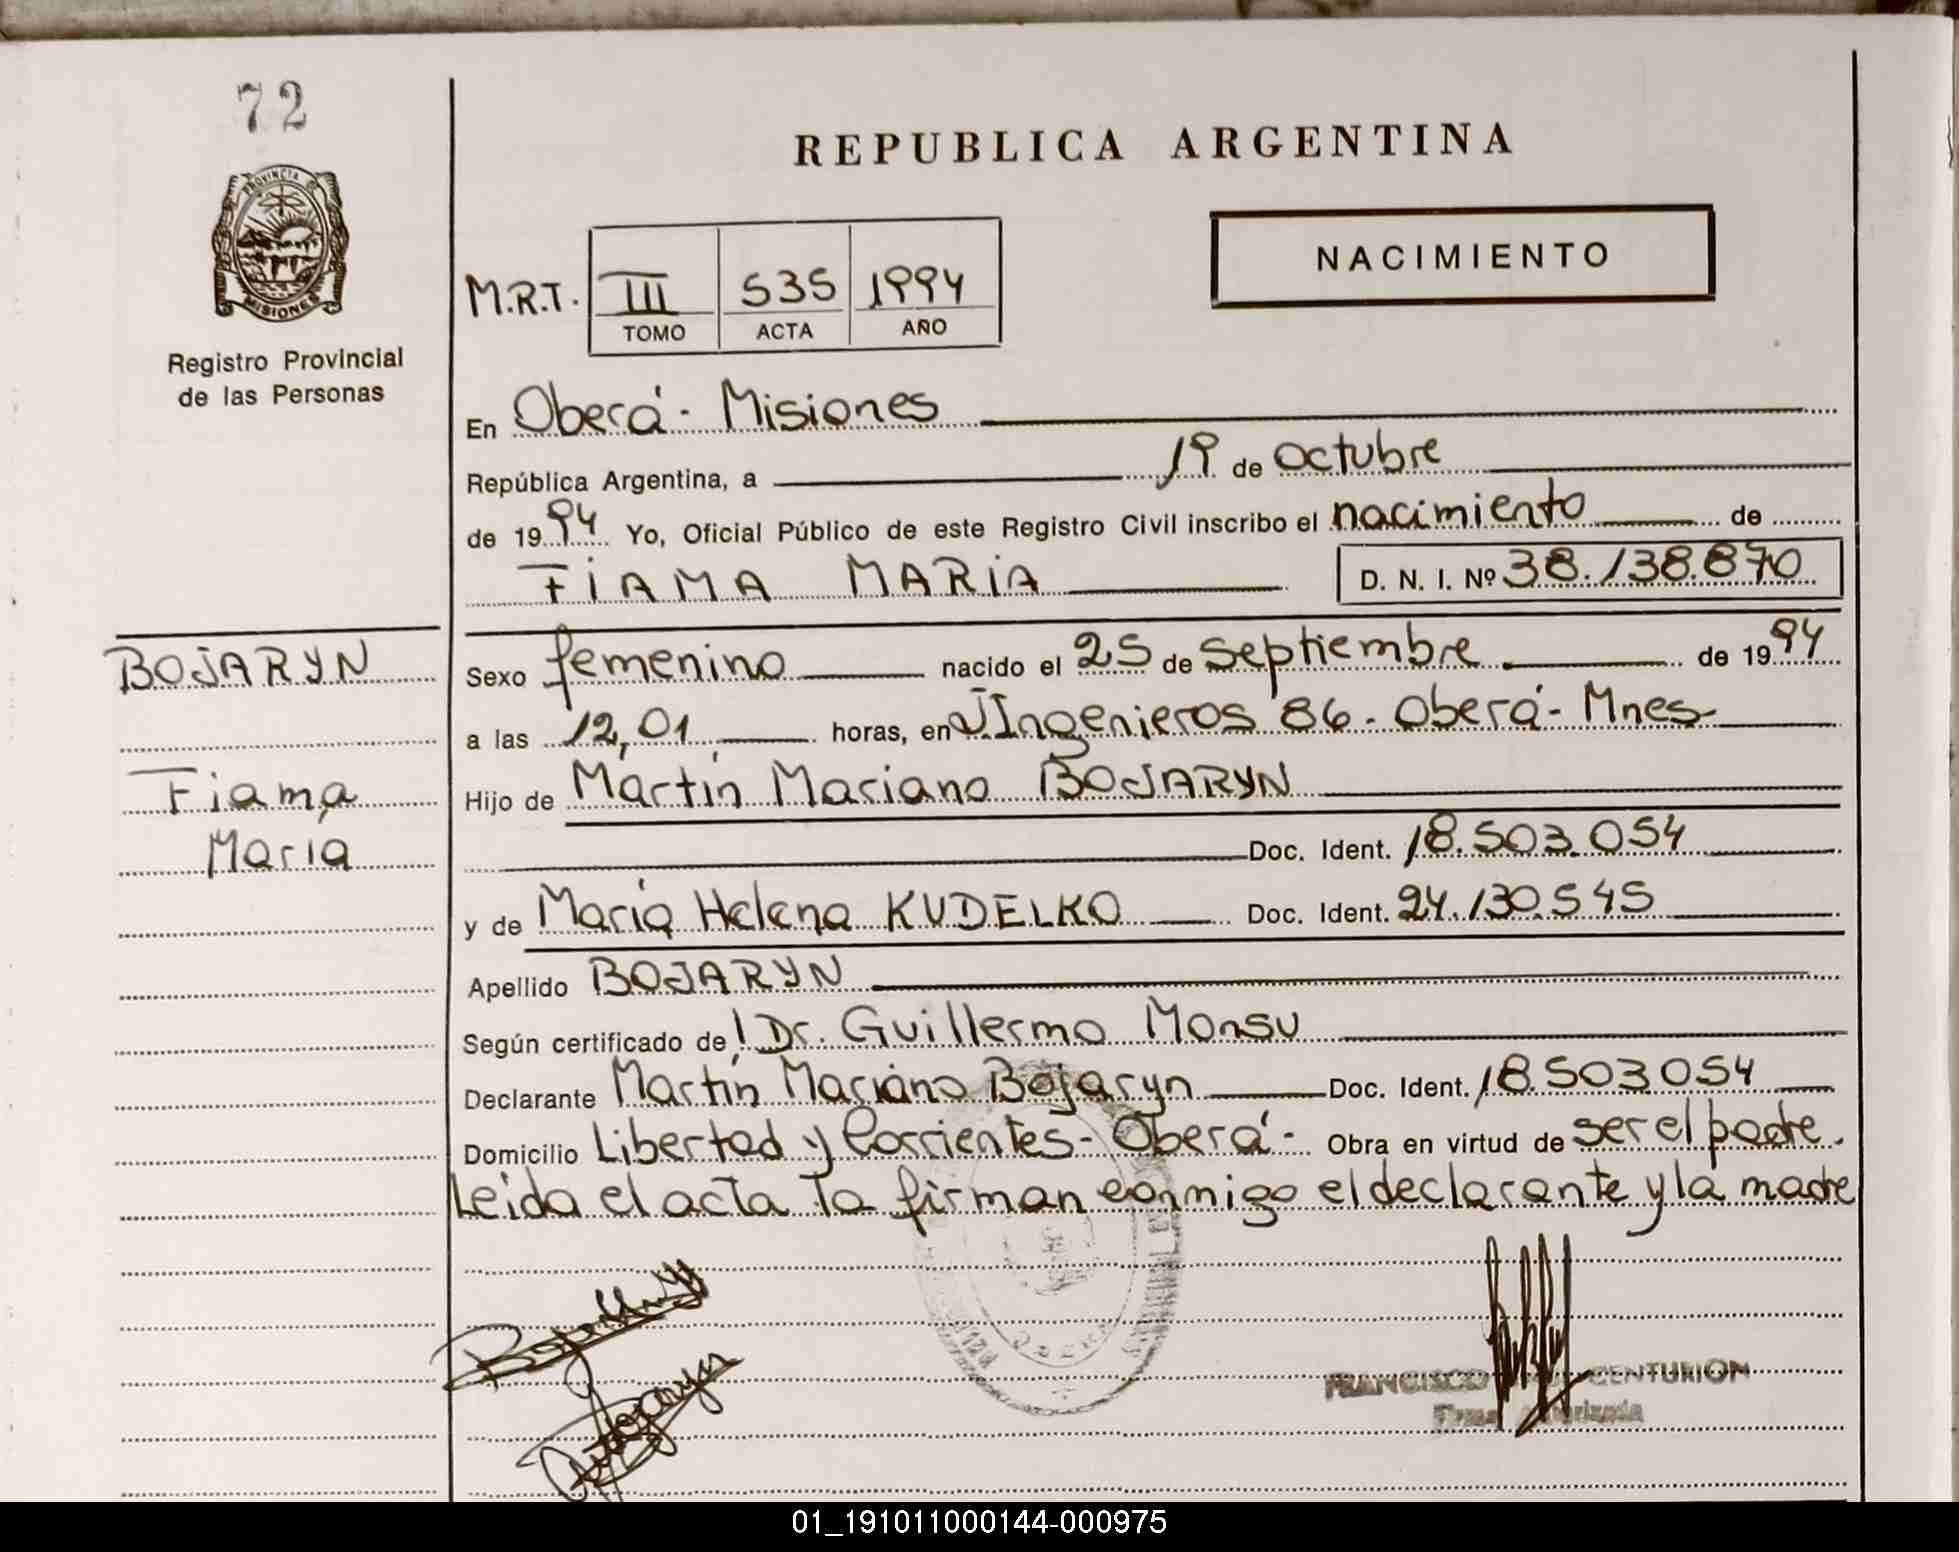 72
REPUBLICA ARGENTINA
PROVINCIA DE
MISIONES
Registro Provincial
de las Personas
NACIMIENTO
M.R.T. III 535 1994
TOMO ACTA AÑO
En Oberá - Misiones
República Argentina, a 19 de octubre
de 1994 Yo, Oficial Público de este Registro Civil inscribo el nacimiento de
FIAMA MARIA D. N. I. Nº 38.138.870
BOJARYN
Sexo femenino nacido el 25 de septiembre de 1994
a las 12,01 horas, en J Ingenieros 86 - Oberá - Mnes
Fiama
María
Hijo de Martín Mariano BOJARYN
Doc. Ident. 18.503.054
y de María Helena KUDELKO Doc. Ident. 24.130.545
Apellido BOJARYN
Según certificado de Dr. Guillermo Monsu
Declarante Martín Mariano Bojaryn Doc. Ident. 18.503.054
Domicilio Libertad y Corrientes - Oberá - Obra en virtud de ser el padre.
Leida el acta la firman conmigo el declarante y la madre
FRANCISCO CENTURION
Firma Autorizada
01_191011000144-000975